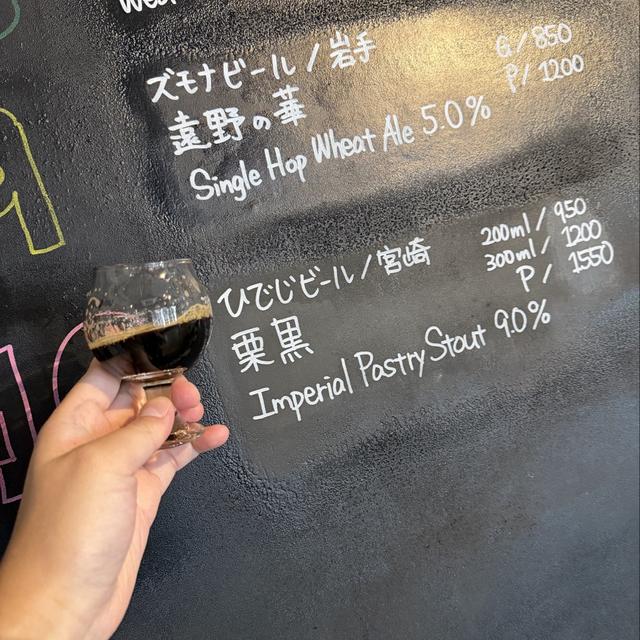 ズモナビール / 岩手
G / 850
P / 1200
遠野の華
Single Hop Wheat Ale 5.0%
ひでじビール / 宮崎
200ml / 950
300ml / 1200
P / 1550
栗黒
Imperial Pastry Stout 9.0%